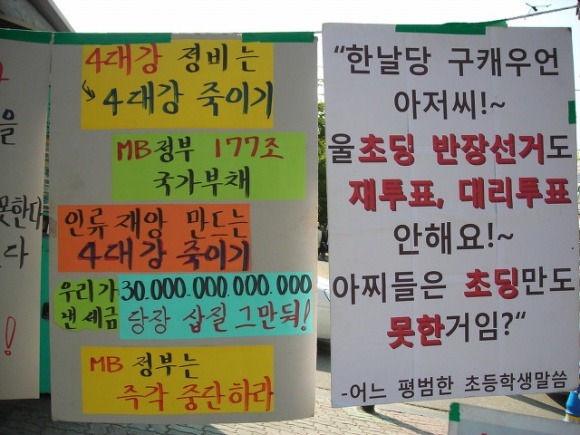 을
못한다
다
!
4대강 정비는
4대강 죽이기
MB정부 177조
국가부채
인류재앙 만드는
4대강 죽이기
우리가
낸 세금
30.000.000.000.000
당장 삽질 그만둬!
MB 정부는
즉각 중단하라
"한날당 구캐우언
아저씨!~
울초딩 반장선거도
재투표, 대리투표
안해요!~
아찌들은 초딩만도
못한거임?"
-어느 평범한 초등학생말씀